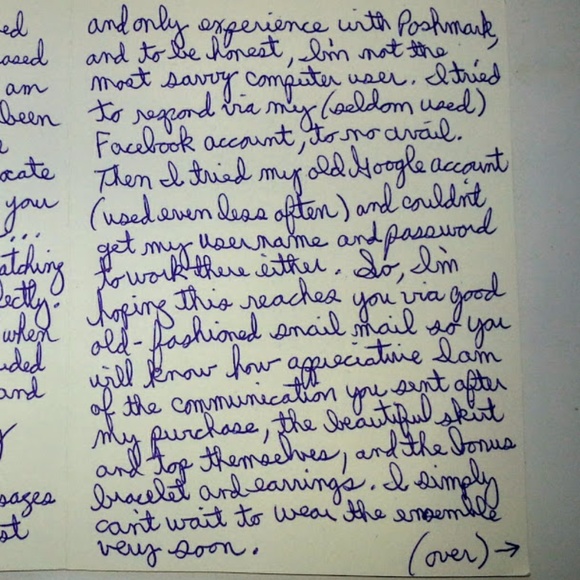 ed
ased
am
been
ocate
you
...
atching
ectly.
when
uded
and
y
sages
st
and only experience with Poshmark,
and to be honest, I'm not the
most savvy computer user. I tried
to respond via my (seldom used)
Facebook account, to no avail.
Then I tried my old Google account
(used even less often) and couldn't
get my username and password
to work there either. So, I'm
hoping this reaches you via good
old-fashioned snail mail so you
will know how appreciative I am
of the communication you sent after
my purchase, the beautiful skirt
and top themselves, and the bonus
bracelet and earrings. I simply
can't wait to wear the ensemble
very soon.
(over) →